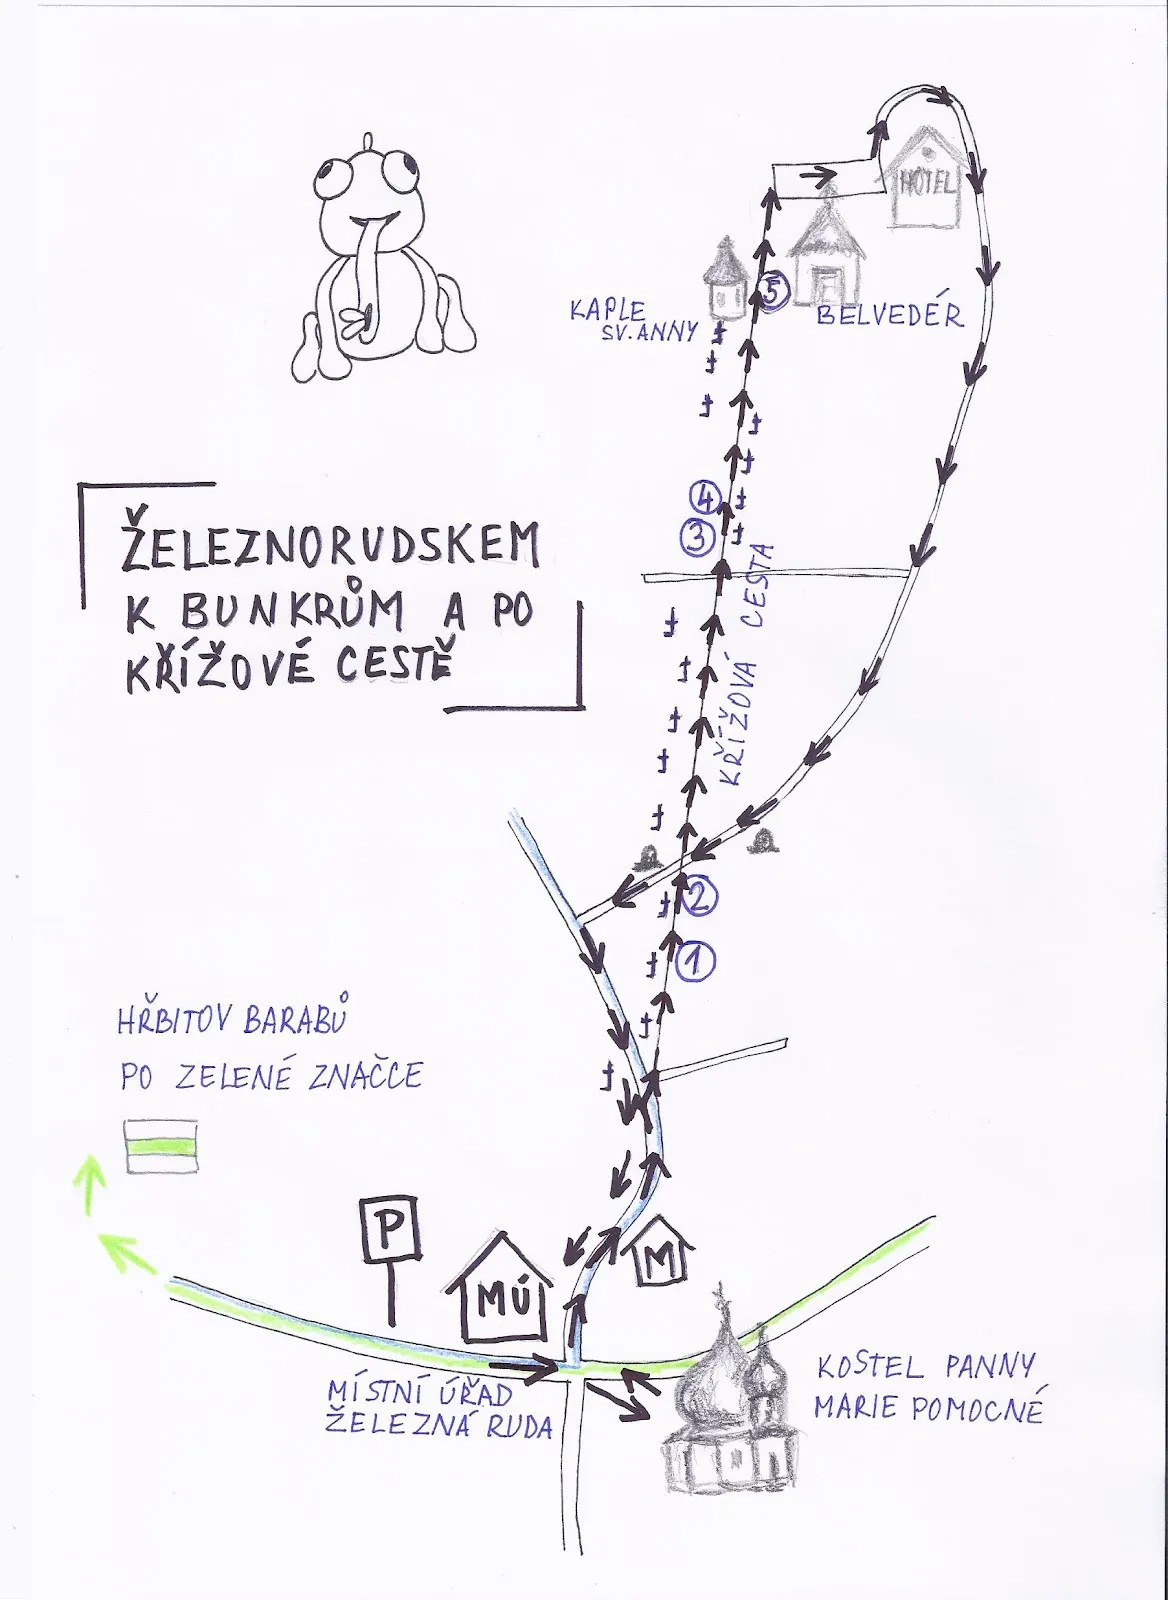 HOTEL
KAPLE
SV. ANNY
5
BELVEDÉR
4
3
ŽELEZNORUDSKEM
K BUNKRŮM A PO
KŘÍŽOVÉ CESTĚ
KŘÍŽOVÁ CESTA
2
1
HŘBITOV BARABŮ
PO ZELENÉ ZNAČCE
P
MÚ
M
MÍSTNÍ ÚŘAD
ŽELEZNÁ RUDA
KOSTEL PANNY
MARIE POMOCNÉ